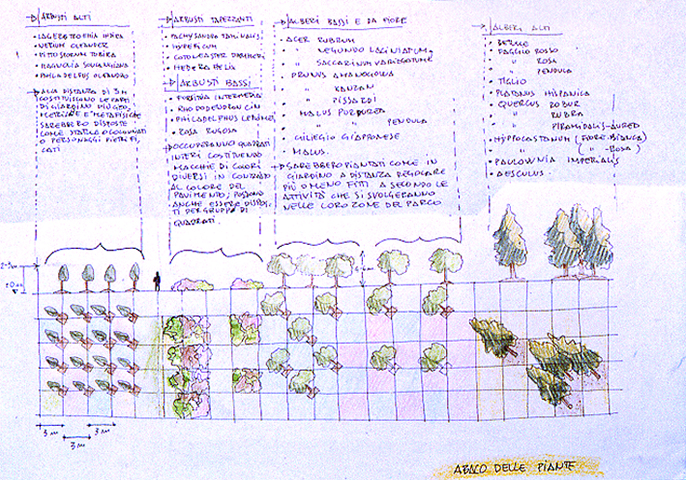 ARBUSTI ALTI
LAGERSTROEMIA INDICA
NERIUM OLEANDER
PITTOSFORUM TOBIRA
MAGNOLIA SOULANGIANA
PHILADELPUS
ALLA DISTANZA DI 3M
COSTITUISCONO LE PARTI
DI GIARDINO PIÙ GEO-
METRICHE E METAFISICHE
SAREBBERO DISPOSTE
COME STATUE O
O PERSONAGGI PIETRIFI
CATI
ARBUSTI TAPEZZANTI
PACHYSANDRA TERMINALIS
HYPERICUM
COTONEASTER DAMMERI
HEDERA HELIX
ARBUSTI BASSI
FORSITIA INTERMEDIA
RHODODENDRON
PHILADELPHUS
ROSA RUGOSA
OCCUPERANNO QUADRATI
INTERI COSTITUENDO
MACCHIE DI COLORI
DIVERSI IN CONTRASTO
AL COLORE DEL
PAVIMENTO; POSSONO
ANCHE ESSERE DISPOS
TI PER GRUPPO DI
QUADRATI.
ALBERI BASSI E DA FIORE
ACER RUBRUM
" NEGUNDO LACINIATUM
" SACCARINUM VARIEGATUME
PRUNUS AMANOGAWA
" KANZAN
" PISSARDI
MALUS PURPUREA
" " PENDULA
CILIEGIO GIAPPONESE
MALUS.
SAREBBERO PIANTATI COME IN
GIARDINO A DISTANZA REGOLARE
PIÙ O MENO FITTI A SECONDO LE
ATTIVITÀ CHE SI SVOLGERANNO
NELLE LORO ZONE DEL PARCO
ALBERI ALTI
BETULE
FAGGIO ROSSO
" ROSA
" PENDULA
TIGLIO
PLATANUS HISPANICA
QUERCUS ROBUR
" RUBRA
" PIRAMIDALIS-AUREO
HIPPOCASTANUM (FIORE-BIANCO)
( " -ROSA)
PAULOWNIA IMPERIALIS
AESCULUS.
±0.00
3 m
3 m
3 m
ABACO DELLE PIANTE